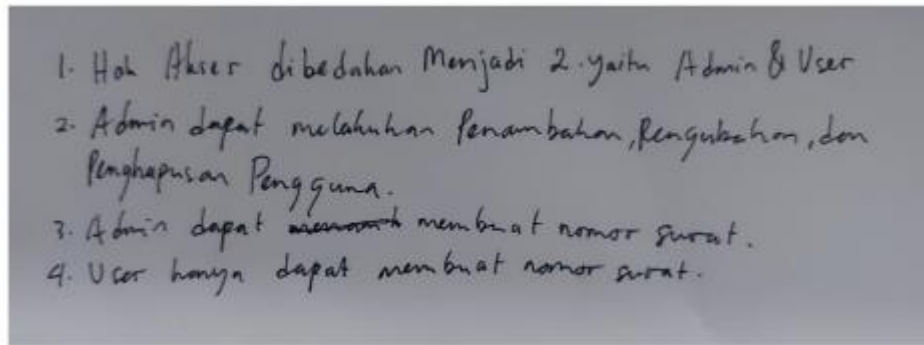 1. Hak Akses dibedakan Menjadi 2. yaitu Admin & User
2. Admin dapat melakukan Penambahan, Pengubahan, dan
Penghapusan Pengguna.
3. Admin dapat membuat nomor surat.
4. User hanya dapat membuat nomor surat.